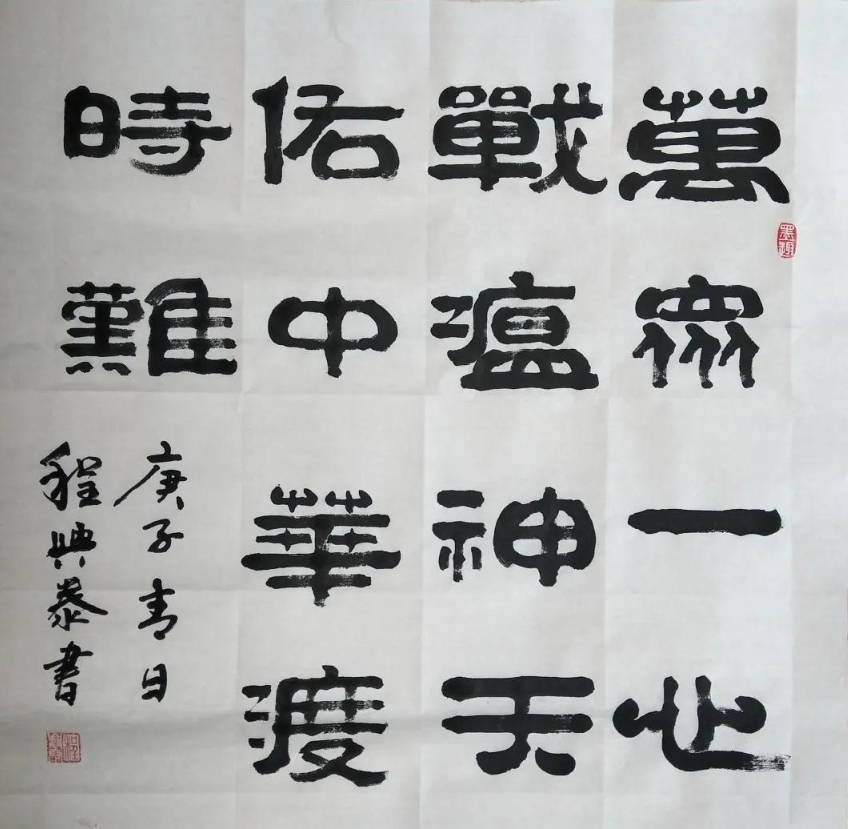 萬眾一心
戰瘟神天
佑中華渡
時難
庚子春日
程典泰書
墨趣